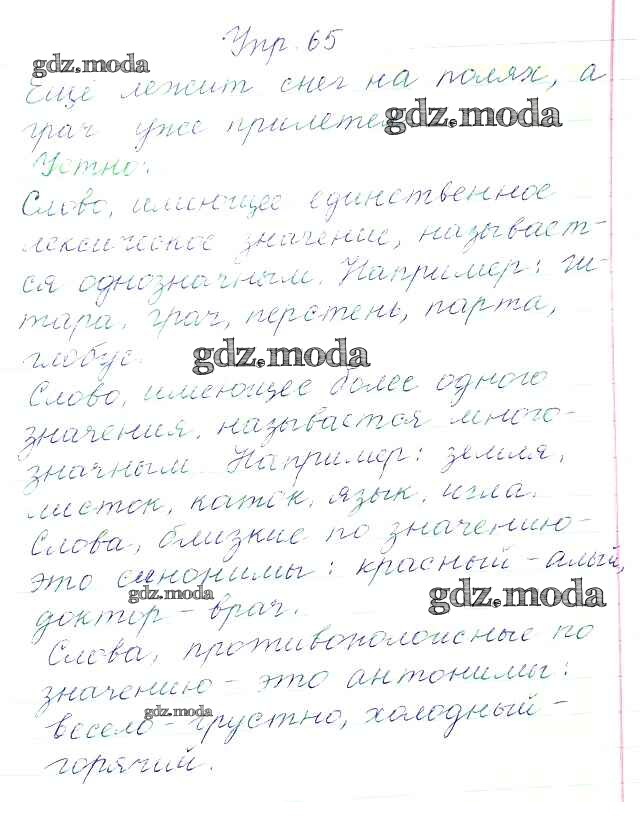 Упр. 65
gdz.moda
Ещё лежит снег на полях, а
грач уже прилетел
gdz.moda
Устно:
Слово, имеющее единственное
лексическое значение, называет-
ся однозначным. Например: ги-
тара, грач, перстень, парта,
глобус.
gdz.moda
Слово, имеющее более одного
значения, называется много-
значным. Например: земля,
листок, каток, язык, игла.
Слова, близкие по значению-
это синонимы: красный - алый,
gdz.moda
gdz.moda
доктор - врач.
Слова, противоположные по
значению - это антонимы:
gdz.moda
весело - грустно, холодный -
горячий.